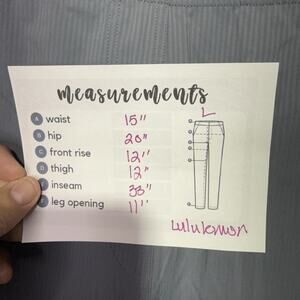 measurements
L
A waist 15"
B hip 20"
C front rise 12"
D thigh 12"
inseam 33"
leg opening 11"
lululemon